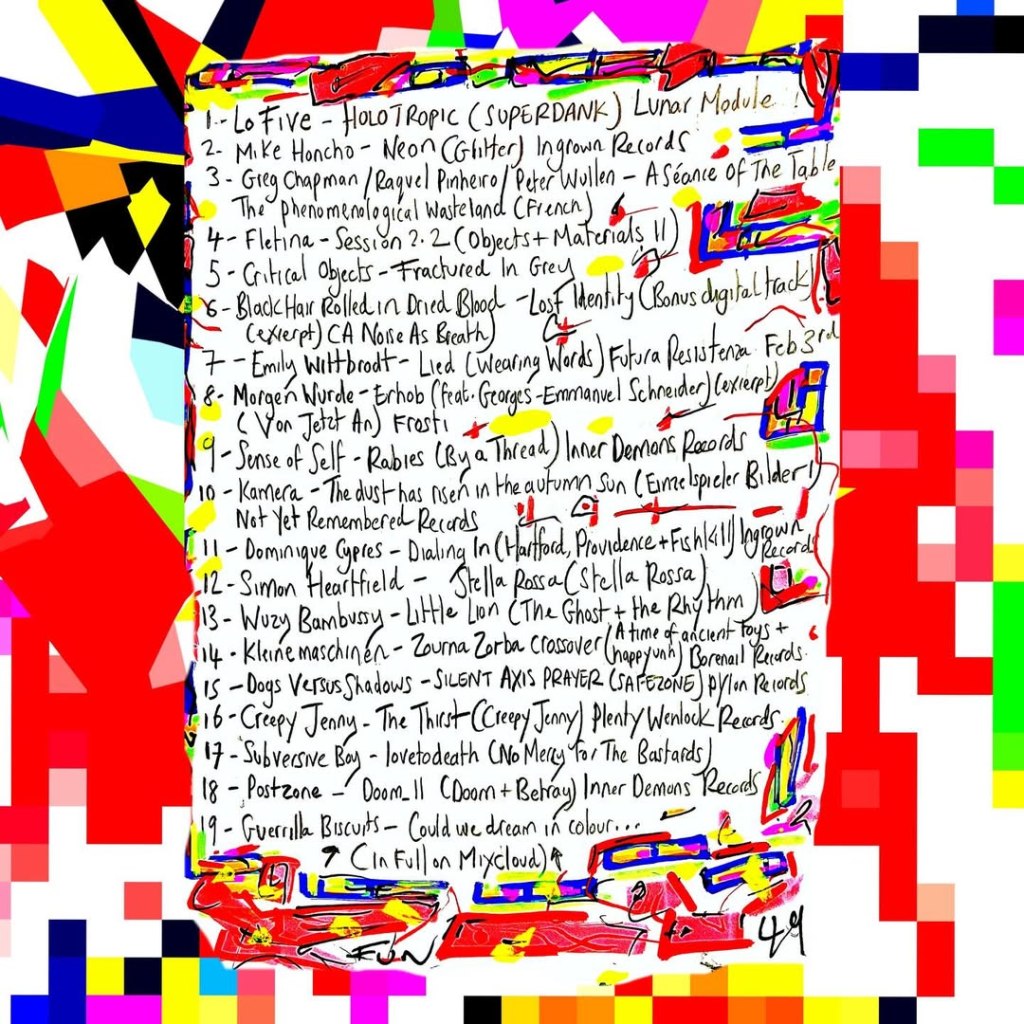 1.- Lo Five - HOLOTROPIC (SUPERDANK) Lunar Module
2- Mike Honcho - Neon (Glitter) Ingrown Records
3 - Greg Chapman / Raquel Pinheiro / Peter Wullen - A Séance Of The Table
The phenomenological Wasteland (French)
4 - Fletina - Session 2.2 (Objects + Materials II)
5 - Critical Objects - Fractured In Grey
6 - Black Hair Rolled in Dried Blood - Lost Identity (Bonus digital track)
(exerpt) (A Noise As Breath)
7 - Emily Wittbrodt - Lied (Wearing Words) Futura Resistenza Feb 3rd
8 - Morgen Wurde - Erhob (feat. Georges-Emmanuel Schneider) (exerpt)
(Von Jetzt An) Frosti
9 - Sense of Self - Rabies (By a Thread) Inner Demons Records
10 - Kamera - The dust has risen in the autumn Sun (Einzelspieler Bilder I)
Not Yet Remembered Records
11 - Dominique Cypres - Dialing In (Hartford, Providence + Fishkill) Ingrown
Records
12 - Simon Heartfield - Stella Rossa (Stella Rossa)
13 - Wuzy Bambussy - Little Lion (The Ghost + the Rhythm)
14 - Kleine maschinen - Zourna Zorba crossover (A time of ancient toys +
happyunh) Borenail Records.
15 - Dogs Versus Shadows - SILENT AXIS PRAYER (SAFEZONE) pylon Records
16 - Creepy Jenny - The Thirst (Creepy Jenny) Plenty Wenlock Records.
17 - Subversive Boy - lovetodeath (No Mercy For The Bastards)
18 - Postzone - Doom_II (Doom + Betray) Inner Demons Records
19 - Guerrilla Biscuits - Could we dream in colour...
(In Full on Mixcloud)
FUN
49